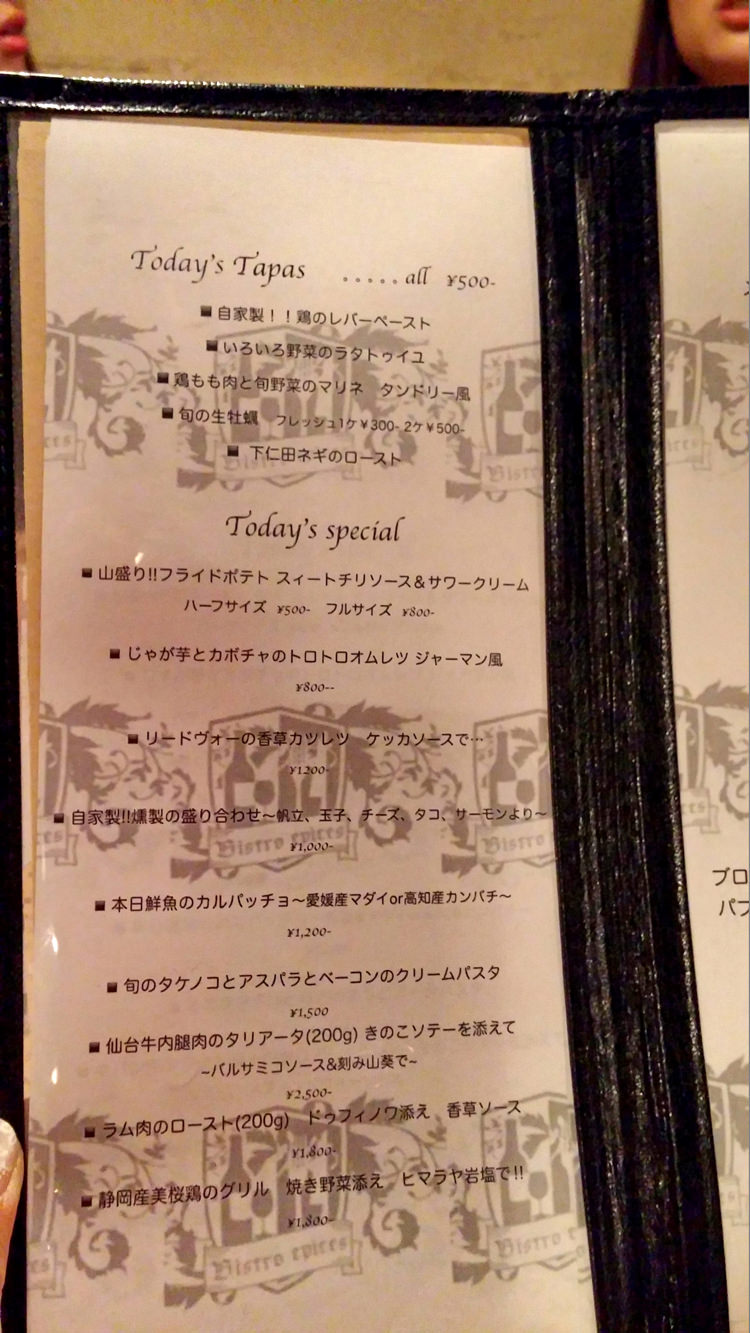 Today's Tapas 。。。。。all ¥500-
■ 自家製！！鶏のレバーペースト
■ いろいろ野菜のラタトゥイユ
■ 鶏もも肉と旬野菜のマリネ　タンドリー風
■ 旬の生牡蠣　フレッシュ1ケ¥300- 2ケ¥500-
■ 下仁田ネギのロースト
Today's special
■ 山盛り!!フライドポテト スィートチリソース＆サワークリーム
ハーフサイズ ¥500- フルサイズ ¥800-
■ じゃが芋とカボチャのトロトロオムレツ ジャーマン風
¥800--
■ リードヴォーの香草カツレツ　ケッカソースで…
¥1200-
■ 自家製!!燻製の盛り合わせ～帆立、玉子、チーズ、タコ、サーモンより～
¥1,000-
■ 本日鮮魚のカルパッチョ～愛媛産マダイor高知産カンパチ～
¥1,200-
■ 旬のタケノコとアスパラとベーコンのクリームパスタ
¥1,500
■ 仙台牛内腿肉のタリアータ(200g) きのこソテーを添えて
~バルサミコソース&刻み山葵で~
¥2,500-
■ ラム肉のロースト(200g)　ドゥフィノワ添え　香草ソース
¥1,800-
■ 静岡産美桜鶏のグリル　焼き野菜添え　ヒマラヤ岩塩で!!
¥1,800-
Bistro epices
ブロ
パフ